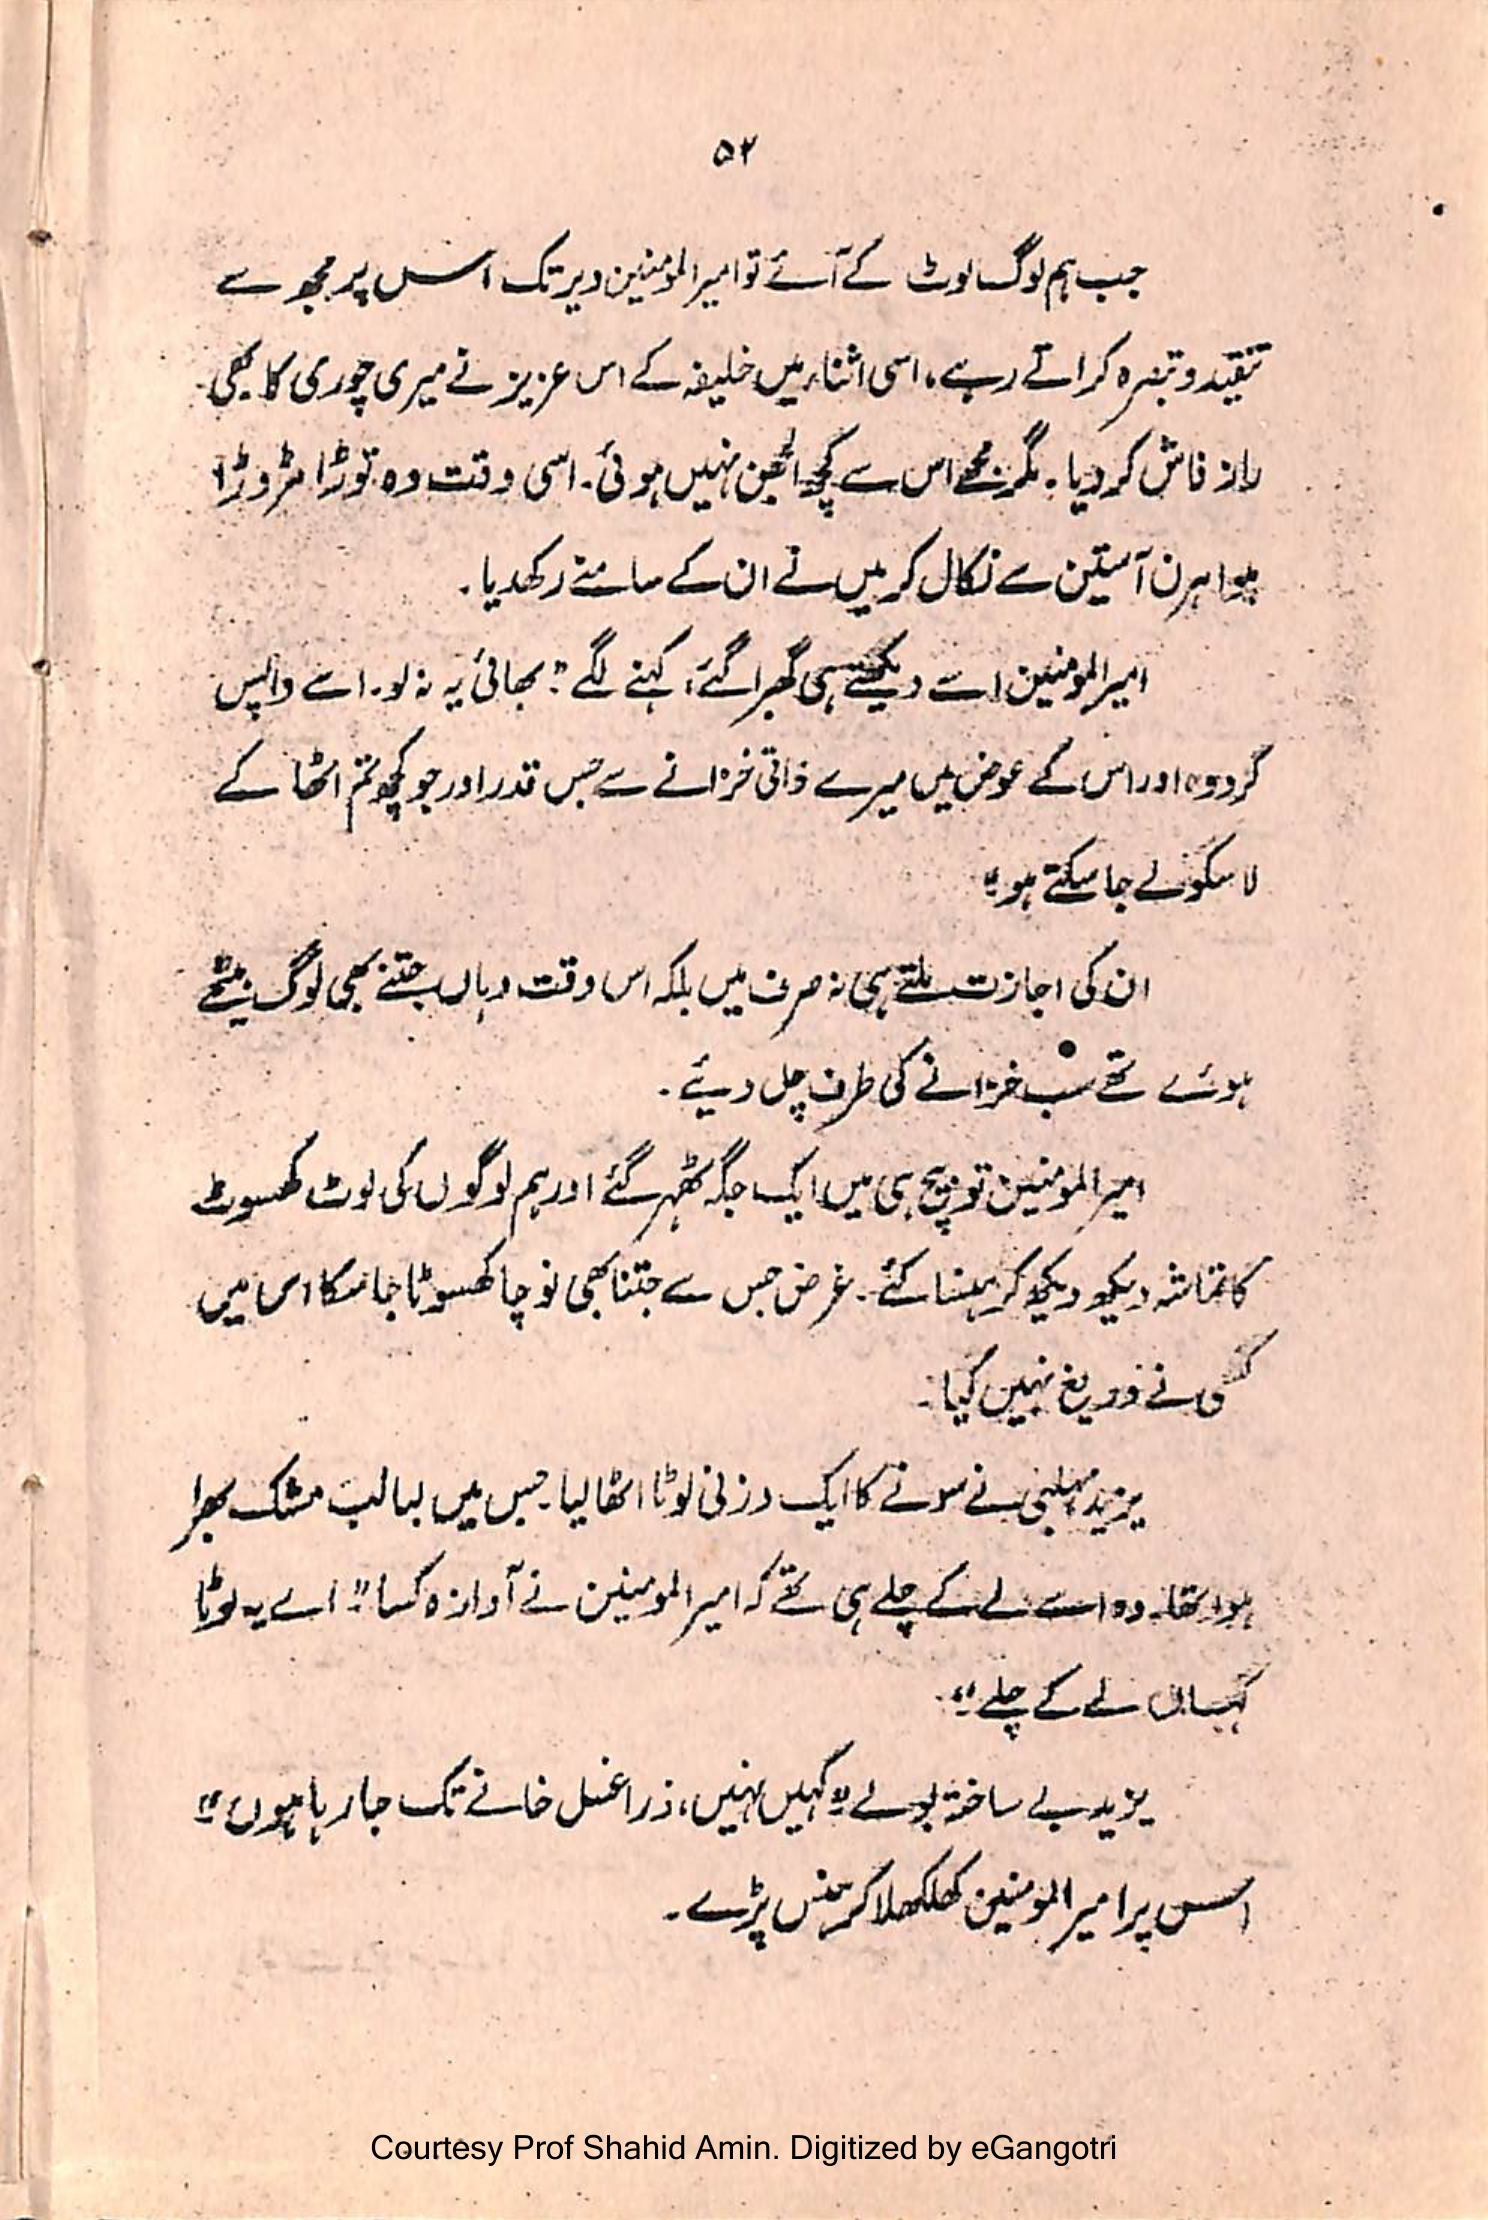 ۵۲
جب ہم لوگ لوٹ کے آئے تو امیرالمومنین دیر تک اس پر مجھ سے
تنقید و تبصرہ کراتے رہے، اسی اثناء میں خلیفہ کے اس عزیز نے میری چوری کا بھی
راز فاش کر دیا۔ مگر مجھے اس سے کچھ الجھن نہیں ہوئی۔ اسی وقت وہ توڑا مڑوڑا
ہوا ہرن آستین سے نکال کر میں نے ان کے سامنے رکھدیا۔
امیرالمومنین اسے دیکھتے ہی گھبرا گئے، کہنے لگے "بھائی یہ نہ لو۔ اسے واپس
کر دو، اور اس کے عوض میں میرے ذاتی خزانے سے جس قدر اور جو کچھ تم اٹھا کے
لا سکو لے جا سکتے ہو"
ان کی اجازت ملتے ہی نہ صرف میں بلکہ اس وقت وہاں جتنے بھی لوگ بیٹھے
ہوئے تھے سب خزانے کی طرف چل دیئے۔
امیرالمومنین تو بیچ ہی میں ایک جگہ ٹھہر گئے اور ہم لوگوں کی لوٹ کھسوٹ
کا تماشہ دیکھ دیکھ کر ہنسا کئے۔ غرض جس سے جتنا بھی نوچا کھسوٹا جا سکا اس میں
کسی نے دریغ نہیں کیا۔
یزید مہلبی نے سونے کا ایک وزنی لوٹا اٹھا لیا۔ جس میں لبالب مشک بھرا
ہوا تھا۔ وہ اسے لے کے چلے ہی تھے کہ امیرالمومنین نے آوازہ کسا "اے یہ لوٹا
کہاں لے کے چلے"۔
یزید بے ساختہ بولے "کہیں نہیں، ذرا غسل خانے تک جا رہا ہوں"
اس پر امیرالمومنین کھلکھلا کر ہنس پڑے۔
Courtesy Prof Shahid Amin. Digitized by eGangotri